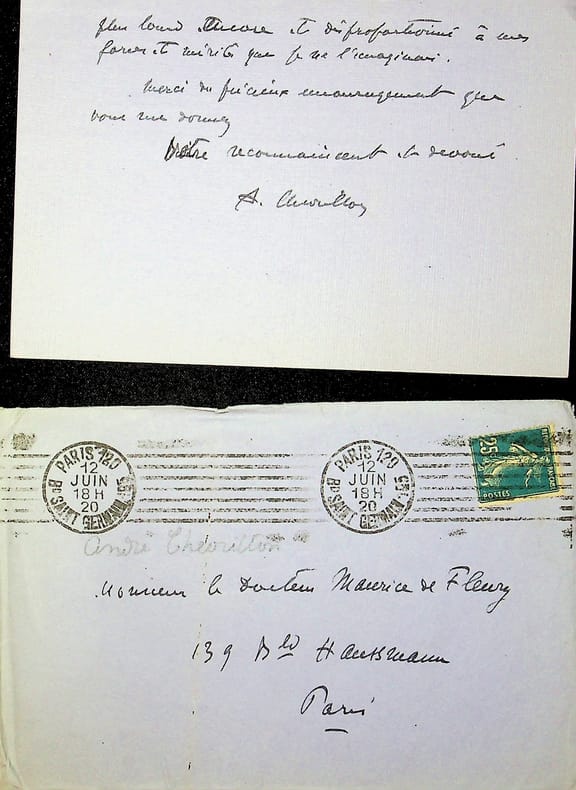 plus lourd encore et disproportionné à mes
forces et mérites que je ne l'imaginais.
Merci du précieux encouragement que
vous me donnez
Votre reconnaissant et devoué
A. Chevrillon
PARIS 120
12
JUIN
18 H
20
Bd SAINT GERMAIN 195
PARIS 120
12
JUIN
18 H
20
Bd SAINT GERMAIN 195
25c
POSTES
André Chevrillon
Monsieur le Docteur Maurice de Fleury
139 Bld Haussmann
Paris